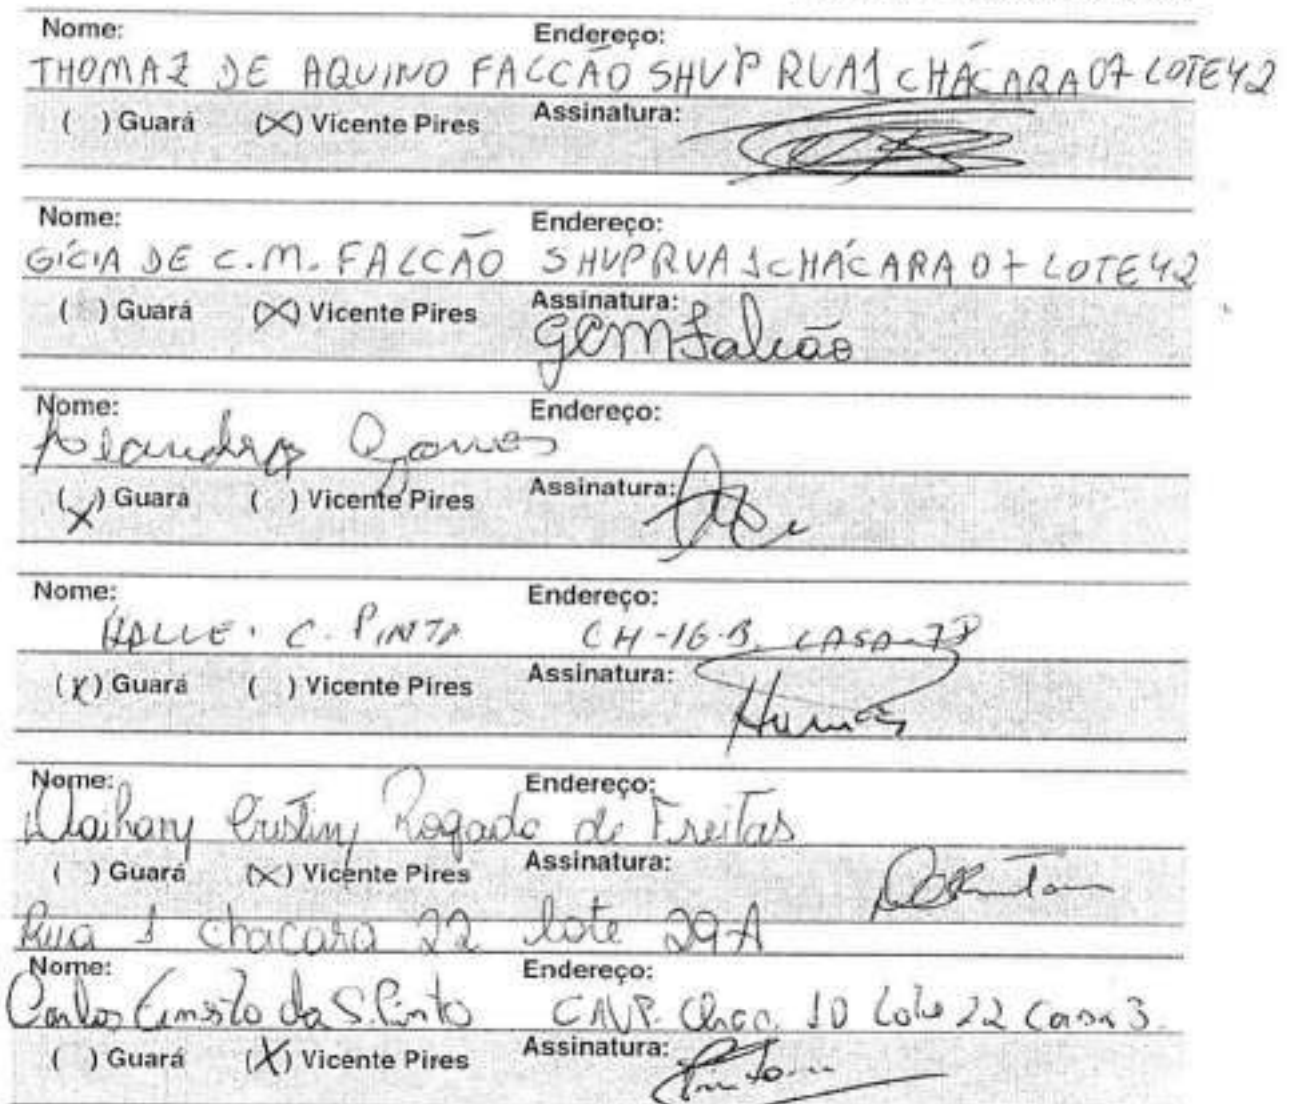 Nome: Endereço:
THOMAZ DE AQUINO FALCÃO SHVP RUA 1 CHÁCARA 07 LOTE 42
( ) Guará (X) Vicente Pires Assinatura:
Nome: Endereço:
GÍCIA DE C.M. FALCÃO SHVP RUA 1 CHÁCARA 07 LOTE 42
( ) Guará (X) Vicente Pires Assinatura: GCMFalcão
Nome: Endereço:
(X) Guará ( ) Vicente Pires Assinatura:
Nome: Endereço:
C. PINTO CH-16-B CASA
(X) Guará ( ) Vicente Pires Assinatura:
Nome: Endereço:
Rogado de Freitas
( ) Guará (X) Vicente Pires Assinatura:
Rua 1 chacara 22 lote 29-A
Nome: Endereço:
Carlos Ernesto da S. Pinto Chac. 10 Lote 22 Casa 3.
( ) Guará (X) Vicente Pires Assinatura: